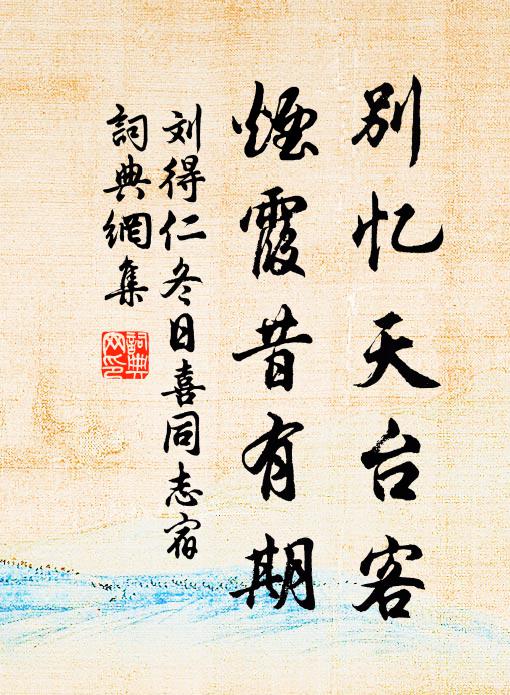 别忆天台客
煙霞昔有期
刘得仁冬日喜同志宿
詞典網集
詞典
网印